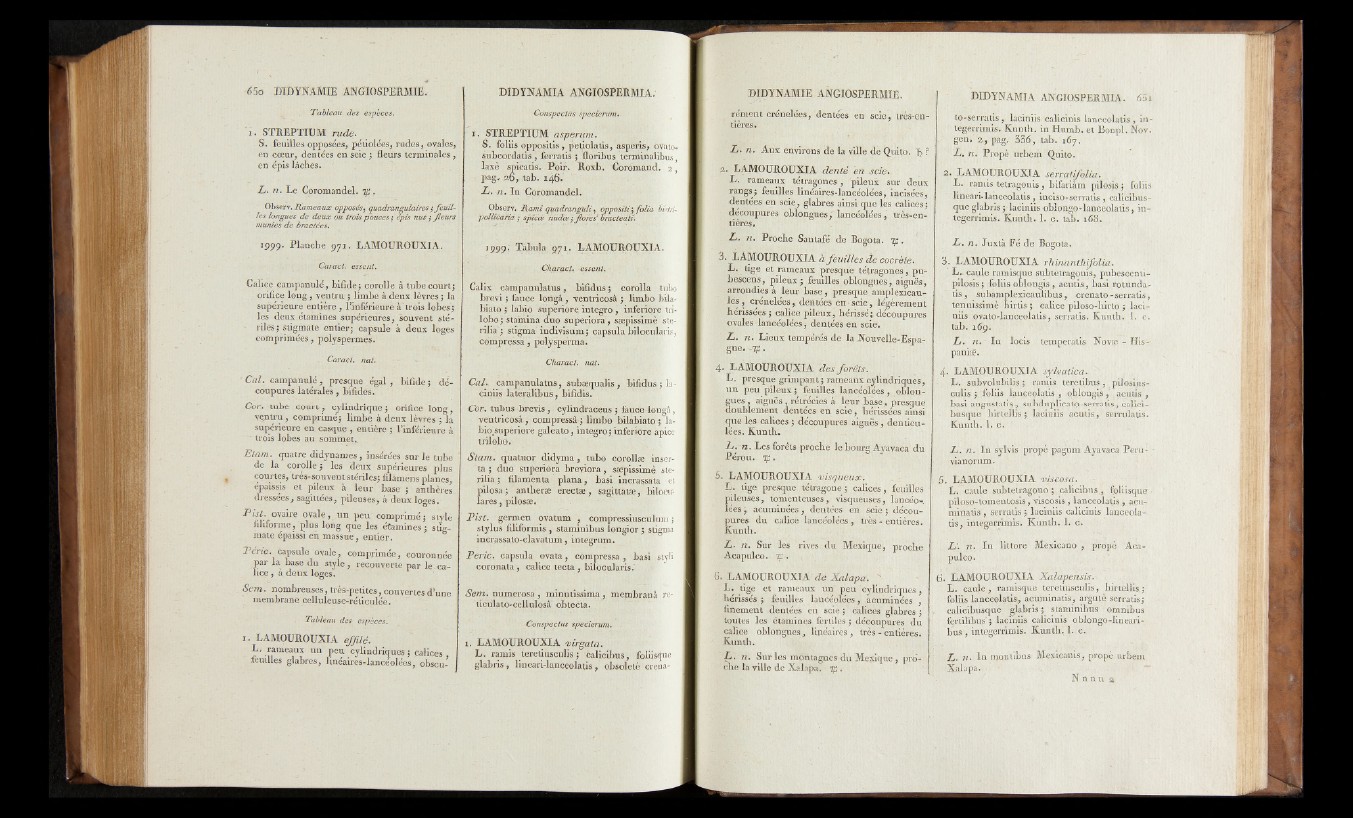 650 DIDYNAMIE ANGIOSPERMIE.
Tableau des espèces.
1. STREPTIUM rude.
S. feuilles opposées, pétiolées, rudes, ovales,
en cœur, dentées en scie ; fleurs terminales,
en épis lâches.
L. n. Le Coromandel. ♃.
Observ. Rameaux opposés, quadrangulaires ; feuil-
les longues de deux ou trois pouces ; épis nus ; fleurs
munies de bractées.
1999. Planche 971. LAMOUROUXIA.
Caract. essent.
Calice campanulé, bifide ; corolle à tube court ;
orifice long, ventru ; limbe à deux lèvres ; la
supérieure entière, l'inférieure à trois lobes ;
les deux étamines supérieures, souvent sté-
riles ; stigmate entier ; capsule à deux loges
comprimées, polyspermes.
Caract. nat.
Cal. campanulé, presque égal, bifide ; dé-
coupures latérales, bifides.
Cor. tube court, cylindrique ; orifice long,
ventru, comprimé ; limbe à deux lèvres ; la
supérieure en casque, entière ; l'inférieure à
trois lobes au sommet.
Etam. quatre didynames, insérées sur le tube
de la corolle ; les deux supérieures plus
courtes, très-souvent stériles ; filamens planes,
épaissis et pileux à leur base ; anthères
dressées, sagittées, pileuses, à deux loges.
Pist. ovaire ovale, un peu comprimé ; style
filiforme, plus long que les étamines ; stig-
mate épaissi en massue, entier.
Péric. capsule ovale, comprimée, couronnée
par la base du style, recouverte par le ca-
lice, à deux loges.
Sem. nombreuses, très-petites, couvertes d'une
membrane celluleuse-réticulée.
Tableau des espèces.
1. LAMOUROUXIA effilé.
L. rameaux un peu cylindriques ; calices,
feuilles glabres, linéaires-lancéolées, obscu-
DIDYNAMIA ANGIOSPERMIA.
Conspectus specierum.
1. STREPTIUM asperum.
S. foliis oppositis, petiolatis, asperis, ovato-
subcordatis, serratis ; floribus terminalibus,
laxè spicatis. Poir. Roxb. Coromand. 2,
pag. 26, tab. 146.
L. n. In Coromandel.
Observ. Rami quadranguli, oppositi ; folia bi-tri-
pollicaria ; spicæ nudæ ; flores bracteati.
1999. Tabula 971. LAMOUROUXIA.
Charact. essent.
Calix campanulatus, bifidus ; corolla tubo
brevi ; fauce longâ, ventricosâ ; limbo bila-
biato ; labio superiore integro, inferiore tri-
lobo ; stamina duo superiora, sæpissimè ste-
rilia ; stigma indivisum ; capsula bilocularis,
compressa, polysperma.
Charact. nat.
Cal. campanulatus, subæqualis, bifidus ; la-
ciniis lateralibus, bifidis.
Cor. tubus brevis, cylindraceus ; fauce longâ,
ventricosâ, compressâ ; limbo bilabiato ; la-
bio superiore galeato, integro ; inferiore apice
trilobo.
Stam. quatuor didyma, tubo corollæ inser-
ta ; duo superiora breviora, sæpissimè ste-
rilia ; filamenta plana, basi incrassata et
pilosa ; antheræ erectæ, sagittatæ, bilocu-
lares, pilosæ.
Pist. germen ovatum, compressiusculum ;
stylus filiformis, staminibus longior ; stigma
incrassato-clavatum, integrum.
Peric. capsula ovata, compressa, basi styli
coronata, calice tecta, bilocularis.
Sem. numerosa, minutissima, membranâ re-
ticulato-cellulosâ obtecta.
Conspectus specierum.
1. LAMOUROUXIA virgata.
L. ramis teretiusculis ; calicibus, foliisque
glabris, lineari-lanceolatis, obsoletè crena-
DIDYNAMIE ANGIOSPERMIE.
rément crénelées, dentées en scie, très-en-
tières.
L. n. Aux environs de la ville de Quito. ♄ ?
2. LAMOUROUXIA denté en scie.
L. rameaux tétragones, pileux sur deux
rangs ; feuilles linéaires-lancéolées, incisées,
dentées en scie, glabres ainsi que les calices ;
découpures oblongues, lancéolées, très-en-
tières.
L. n. Proche Santafé de Bogota. ♃.
3. LAMOUROUXIA à feuilles de cocrète.
L. tige et rameaux presque tétragones, pu-
bescens, pileux ; feuilles oblongues, aiguës,
arrondies à leur base, presque amplexicau-
les, crénelées, dentées en scie, légèrement
hérissées ; calice pileux, hérissé ; découpures
ovales lancéolées, dentées en scie.
L. n. Lieux tempérés de la Nouvelle-Espa-
gne. ♃.
4. LAMOUROUXIA des forêts.
L. presque grimpant ; rameaux cylindriques,
un peu pileux ; feuilles lancéolées, oblon-
gues, aiguës, rétrécies à leur base, presque
doublement dentées en scie, hérissées ainsi
que les calices ; découpures aiguës, denticu-
lées. Kunth.
L. n. Les forêts proche le bourg Ayavaca du
Pérou. ♃.
5. LAMOUROUXIA visqueux.
L. tige presque tétragone ; calices, feuilles
pileuses, tomenteuses, visqueuses, lancéo-
lées, acuminées, dentées en scie ; décou-
pures du calice lancéolées, très-entières.
Kunth.
L. n. Sur les rives du Mexique, proche
Acapulco. ♃.
6. LAMOUROUXIA de Xalapa.
L. tige et rameaux un peu cylindriques,
hérissés ; feuilles lancéolées, acuminées,
finement dentées en scie ; calices glabres ;
toutes les étamines fertiles ; découpures du
calice oblongues, linéaires, très-entières.
Kunth.
L. n. Sur les montagnes du Mexique, pro-
che la ville de Xalapa. ♃.
DIDYNAMIA ANGIOSPERMIA. 651
to-serratis, laciniis calicinis lanceolatis, in-
tegerrimis. Kunth. in Humb. et Bonpl. Nov.
gen. 2, pag. 336, tab. 167.
L. n. Propè urbem Quito.
2. LAMOUROUXIA serratifolia.
L. ramis tetragonis, bifariàm pilosis ; foliis
lineari-lanceolatis, inciso-serratis, calicibus-
que glabris ; laciniis oblongo-lanceolatis, in-
tegerrimis. Kunth. l. c. tab. 168.
L. n. Juxtà Fé de Bogota.
3. LAMOUROUXIA rhinanthifolia.
L. caule ramisque subtetragonis, pubescenti-
pilosis ; foliis oblongis, acutis, basi rotunda-
tis, subamplexicaulibus, crenato-serratis,
tenuissimè hirtis ; calice piloso-hirto ; laci-
niis ovato-lanceolatis, serratis. Kunth. l. c.
tab. 169.
L. n. In locis temperatis Novæ-His-
paniæ.
4. LAMOUROUXIA sylvatica.
L. subvolubilis ; ramis teretibus, pilosius-
culis ; foliis lanceolatis, oblongis, acutis,
basi angustatis, subduplicato-serratis, calici-
busque hirtellis ; laciniis acutis, serrulatis.
Kunth. l. c.
L. n. In sylvis propè pagum Ayavaca Peru-
vianorum.
5. LAMOUROUXIA viscosa.
L. caule subtetragono ; calicibus, foliisque
piloso-tomentosis, viscosis, lanceolatis, acu-
minatis, serratis ; laciniis calicinis lanceola-
tis, integerrimis. Kunth. l. c.
L. n. In littore Mexicano, propè Aca-
pulco.
6. LAMOUROUXIA Xalapensis.
L. caule, ramisque teretiusculis, hirtellis ;
foliis lanceolatis, acuminatis, argutè serratis ;
calicibusque glabris ; staminibus omnibus
fertilibus ; laciniis calicinis oblongo-lineari-
bus, integerrimis. Kunth. l. c.
L. n. In montibus Mexicanis, propè urbem
Xalapa.
N n n n 2